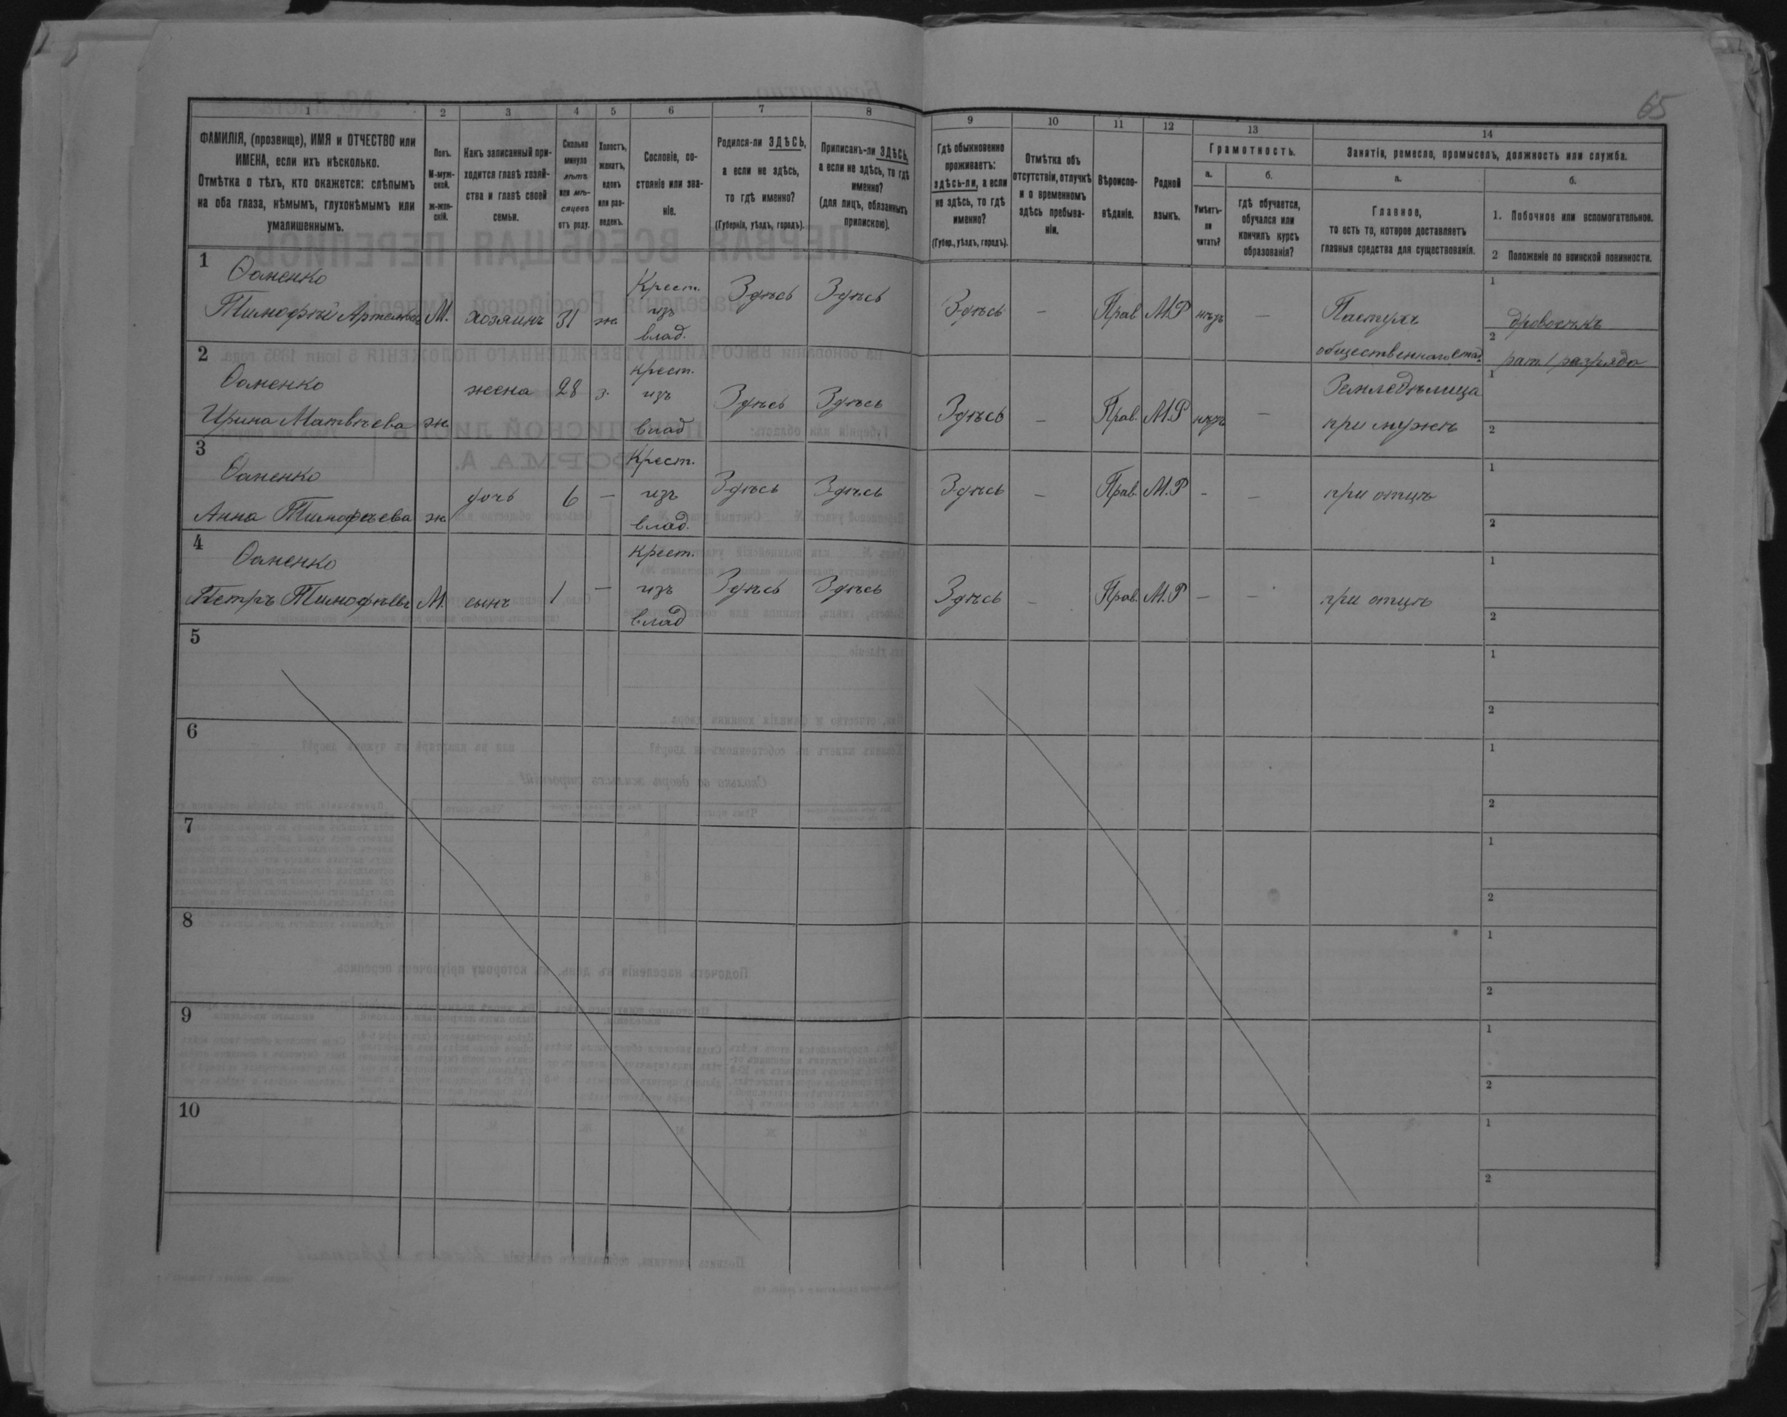 65
1 2 3 4 5 6 7 8 9 10 11 12 13 14
ФАМИЛІЯ, (прозвище), ИМЯ и ОТЧЕСТВО или
ИМЕНА, если ихъ нѣсколько.
Отмѣтка о тѣхъ, кто окажется: слѣпымъ
на оба глаза, нѣмымъ, глухонѣмымъ или
умалишеннымъ.
Полъ.
М-муж-
ской.
Ж-жен-
скій.
Какъ записанный при-
ходится главѣ хозяй-
ства и главѣ своей
семьи.
Сколько
минуло
лѣтъ
или мѣ-
сяцевъ
отъ роду.
Холостъ,
женатъ,
вдовъ
или раз-
веденъ.
Сословіе, со-
стояніе или зва-
ніе.
Родился-ли ЗДѢСЬ,
а если не здѣсь,
то гдѣ именно?
(Губернія, уѣздъ, городъ).
Приписанъ-ли ЗДѢСЬ,
а если не здѣсь, то гдѣ
именно?
(для лицъ, обязанныхъ
припискою).
Гдѣ обыкновенно
проживаетъ:
здѣсь-ли, а если
не здѣсь, то гдѣ
именно?
(Губер., уѣздъ, городъ).
Отмѣтка объ
отсутствіи, отлучкѣ
и о временномъ
здѣсь пребыва-
ніи.
Вѣроиспо-
вѣданіе.
Родной
языкъ.
Грамотность.
а.
Умѣетъ-
ли
читать?
б.
гдѣ обучается,
обучался или
кончилъ курсъ
образованія?
Занятіе, ремесло, промыселъ, должность или служба.
а.
Главное,
то есть то, которое доставляетъ
главныя средства для существованія.
б.
1. Побочное или вспомогательное.
2 Положеніе по воинской повинности.
1
Тимофей М. хозяинъ 31 ж Крест. изъ влад. Здѣсь Здѣсь Здѣсь - Прав М.Р нѣтъ — Пастухъ
общественнаго
1 дровосѣкъ
2 рат. 1 разряда
2
Ирина Матвѣева ж жена 28 з. крест. изъ влад Здѣсь Здѣсь Здѣсь - Прав. М.Р нѣтъ — Земледѣлица
при мужѣ
1
2
3
Анна Тимофеева ж дочь 6 — Крест. изъ влад. Здѣсь Здѣсь Здѣсь - Прав. М.Р - - при отцѣ
1
2
4
Петръ Тимофѣевъ М. сынъ 1 — крест. изъ влад Здѣсь Здѣсь Здѣсь - Прав. М.Р - - при отцѣ
1
2
5
1
2
6
1
2
7
1
2
8
1
2
9
1
2
10
1
2